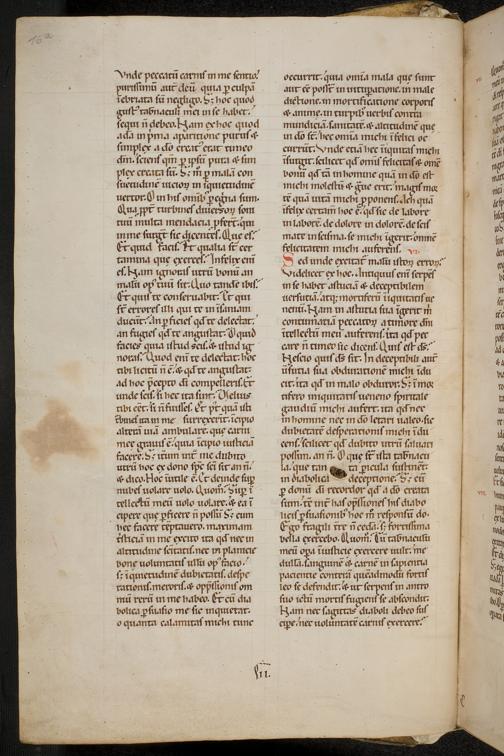 Vnde peccatū carnis in me sentio.
purissimū aut deū quia ꝑ culpā
sequi ñ debeo. Nam ex hoc quod
ada in p̄ma apparitione purus &
simplex a do creatꝰ erat timeo
dm̄. sciens qm̄ ꝑ ipsū pura & sim
plex creata sū. S; m̄ ꝑ malā con
suetudinē uicioꝝ in iquietudinē
uertor. O in his omibꝫ pegͥna sum.
tuū multa mendacia ꝓferēt. que in
me surgēt sic dicentes. Que es?
Et quid facis. Et qualia sēt cer
tamina que exerces? Infelix eni
es. Nam ignoras utrū bonū an
malū opꝰ tuū sit. Quo tandē ibis?
Et quis te conseruabit. Et qui
sēt errores isti qui te in insaniam
ducunt. An ꝑficies qd̓ te delectat.
an fugies qd̓ te angustat. O quid
facies quia istud scis. & istud ig
noras. Quod eni te delectat. hoc
tibi licitū ñ ē. & qd̓ te angustat.
ad hoc p̄cepto dī compelleris. Et
unde scis. si hec ita sint. Melius
tibi eēt. si ñ fuisses. Et pꝰ quā ista
in me surrexerīt. incipio
alterā uiā ambulare. que carni
mee grauis ē. quia īcipio iusticiā
facere. S; itum int̓ me dubito
utrū hoc ex dono sp̄c sc̄i sit an ñ.
& dico. Hoc inutile ē. Et deinde suꝑ
nubes uolare uolo. Quom̄. Suꝑ ī
tellectū meū uolo uolare. & ea ī
cipere que ꝑficere ñ possū. S; cum
hec facere teptauero. maximam
tristiciā in me excito ita qd̓ nec in
altitudine sc̄itatis. nec in planicie
bone uoluntatis ullū opꝰ facio.
s; iquietudinē dubietatis. despe
rationis. meroris. & opp̄ssionis om
niū rerū in me habeo. Et cū dia
bolica ꝓsuasio me sic inquietat.
o quanta calamitas michi tunc
occurrit. quia omia mala que sunt
aut eē poss̄t in uituꝑatione. in male
dictione. in mortificatione corporis
& anime. in turpibꝫ uerbis contra
mundiciā. sanitatē. & altitudinē que
in do sēt. hec omia michi īfelici oc
currūt. Vnde etiā hec iniquitas michi
īsurgit. scilicet qd̓ omis felicitas & omē
bonū qd̓ tā in homine quā in do est
michi molestū & graue erit. magis mor
tē quā uitā michi ꝓponens. Ach quā
īfelix certam̄ hoc ē. qd̓ sic de labore
in laborē. de dolore in dolorē. de scis
mate in scisma. se michi īgerit. omnē
felicitatem michi auferens. VI.
Sed unde excitat̓ malū istoꝝ erroꝝ.
Videlicet ex hoc. Antiquus eni serpēs
in se habet astuciā & deceptibilem
uersutiā. atqꝫ mortiferū iniquitatis ue
nenū. Nam in astutia sua īgerit m̄
contumatiā peccatoꝝ a timore dm̄
īntellectū meū auferens. ita qd̓ pec
care ñ timeo sic dicens. Quis est dꝰ.
Nescio quis dꝰ sit. In deceptibili aut
uersutia sua obdurationē michi īdu
cit. ita qd̓ in malo obduror. S; ī mor
tifero iniquitatis ueneno spiritale
gaudiū michi aufert. ita qd̓ nec
in homine nec in do letari ualeo. &
dubietatē despeꝛationis michi īdu
cens. scilicet qd̓ dubito utrū saluari
possim. an ñ. O que sēt ista tabnacu
la. que tan ta picula sustinēt
in diabolica deceptione. S; cū
ꝑ donū dī recordor qd̓ a do creata
sum. tē int̓ has opp̄ssiones his diabo
licis ꝓsuasionibꝫ hoc m̄ respōsū do.
Ego fragili tr̄e ñ cedā. s; fortissima
bella exercebo. Quom̄. Cū tabnaculū
meū opa iniusticie exercere uult. me
dullā. sanguinē & carnē in sapientia
pacientie conterā. quēadmodū fortis
leo se defendit. & ut serpens in antro
suo ictū mortis fugiens se abscondit.
Nam nec sagittas diaboli debeo sus
cipe. nec uoluntatē carnis exercere.